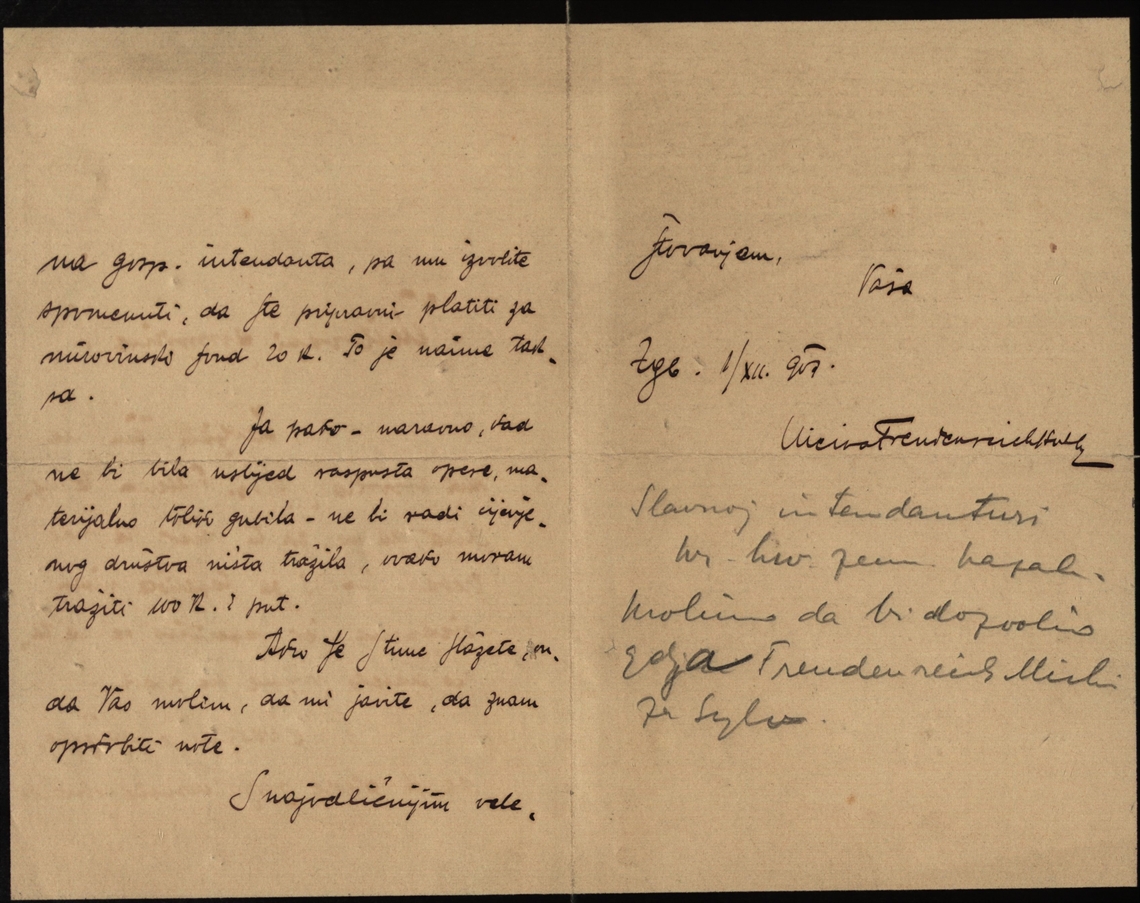 na gosp. intendanta, pa mu izvolite
spomenuti, da ste pripravni platiti za
mirovinski fond 20 K. To je naime tak-
sa.
Ja pako - naravno, kad
ne bi bila uslijed raspusta opere, ma-
terijalno toliko gubila - ne bi radi
nog društva ništa tražila, ovako moram
tražiti 100 K. i put.
Ako se s time slažete, on-
da Vas molim, da mi javite, da znam
opskrbiti note.
S najodličnijim vele-
štovanjem,
Vaša
Zgb. 1/XII. 902.
Micika Freudenreich
Slavnoj intendanturi
hr. zem. kazal.
Molimo da bi dozvolio
gdja Freudenreich